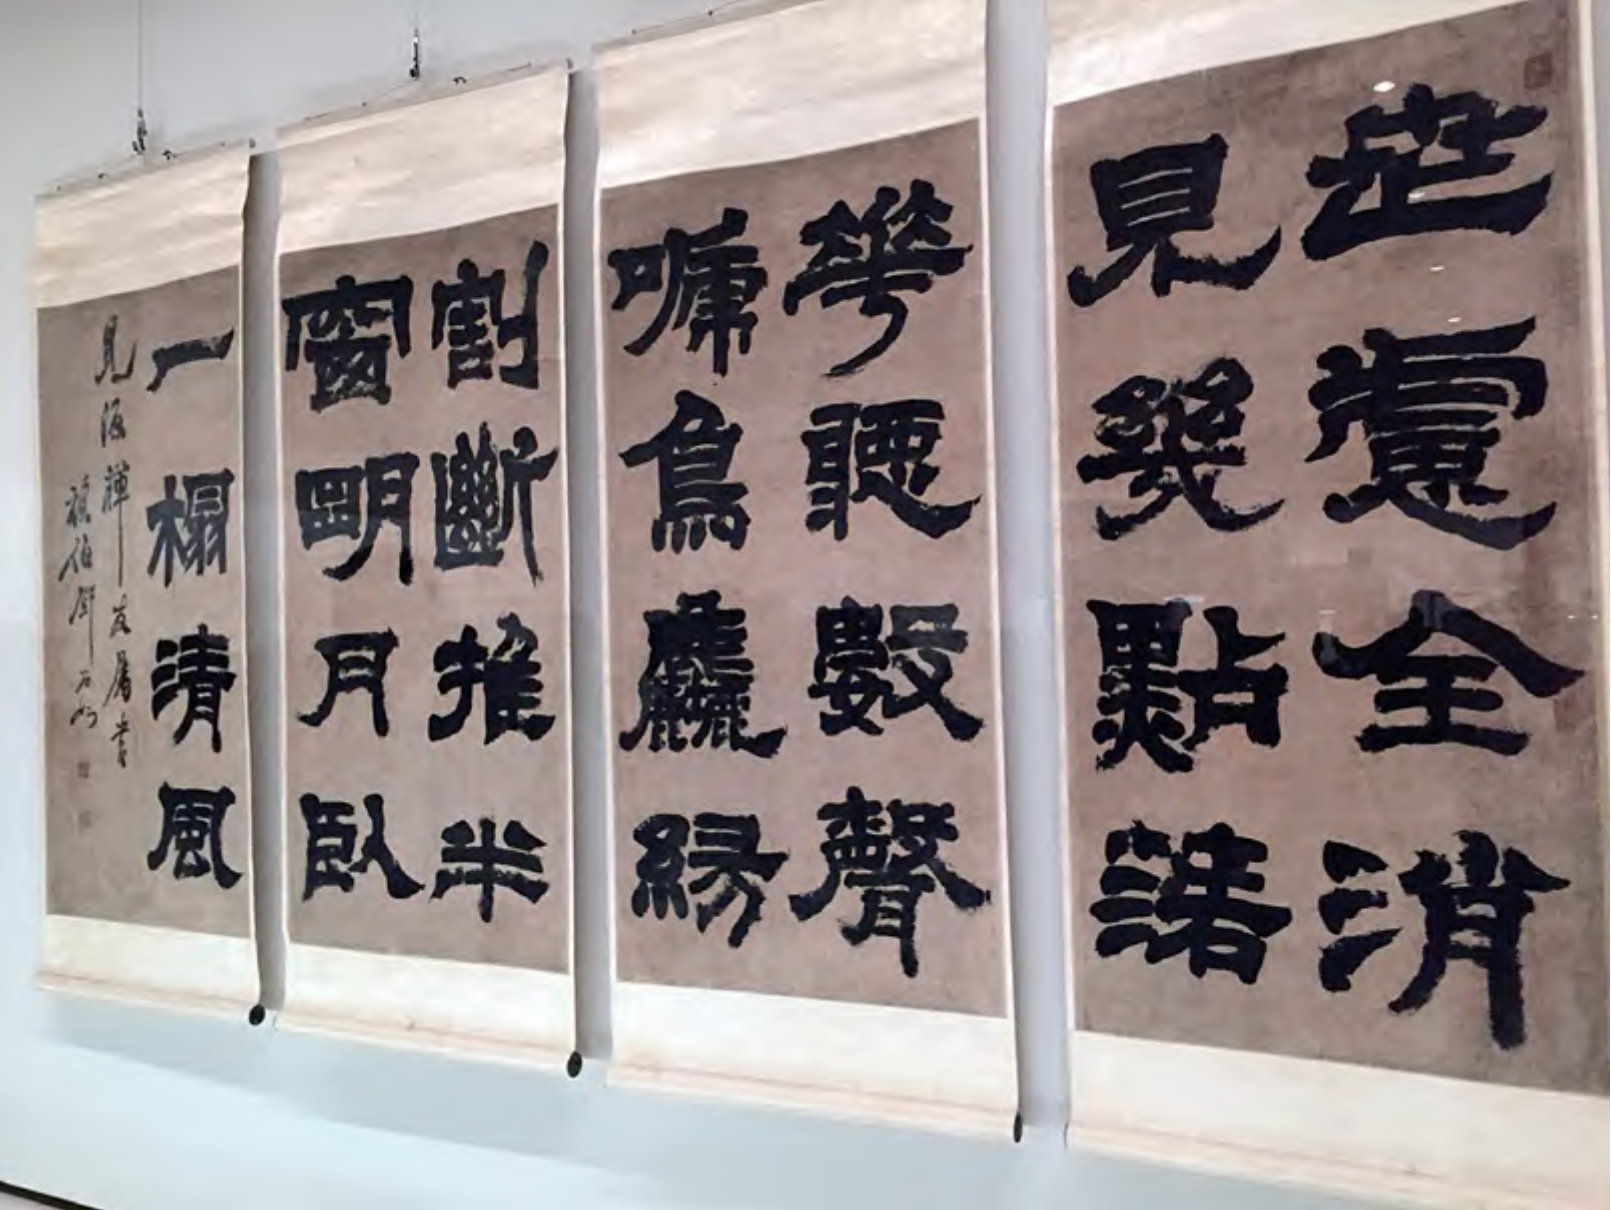 世慮全消
見幾點落
華聽數聲
嗁鳥塵緣
割斷推半
窗明月臥
一榻清風
見源禪友屬書
頑伯鄧石如